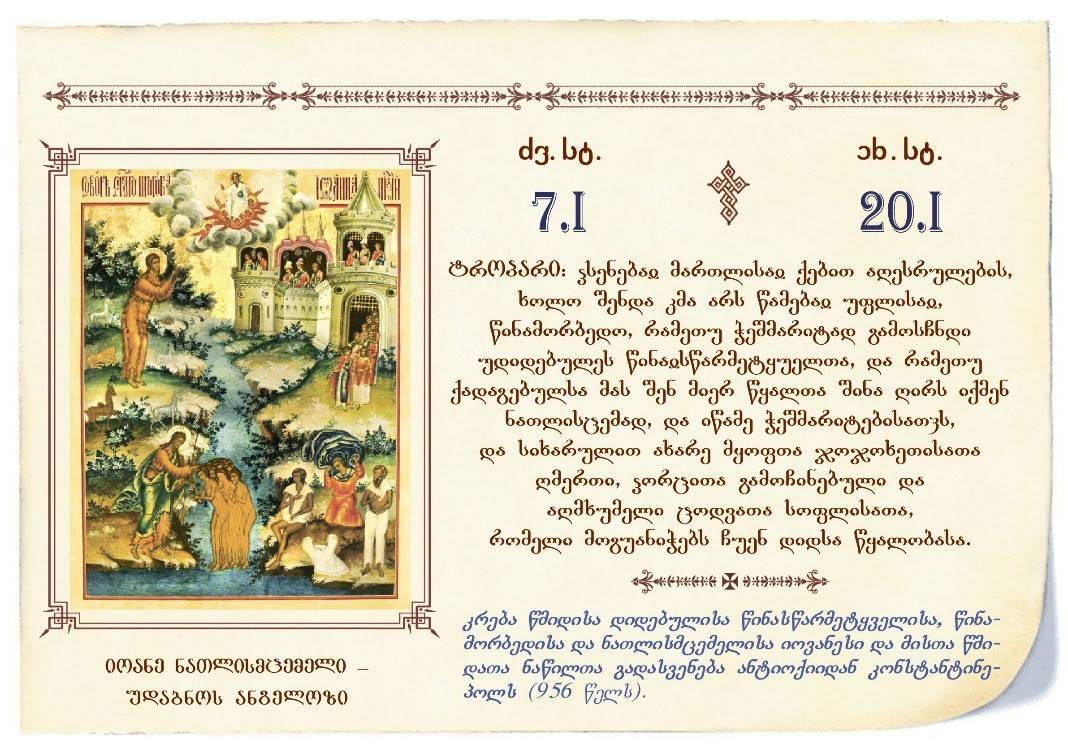 соборъ
ძვ. სტ.
ახ. სტ.
7.I
20.I
ტროპარი: ჴსენებაჲ მართლისაჲ ქებით აღესრულების,
ხოლო შენდა კმა არს წამებაჲ უფლისაჲ,
წინამორბედო, რამეთუ ჭეშმარიტად გამოსჩნდი
უდიდებულეს წინაჲსწარმეტყუელთა, და რამეთუ
ქადაგებულსა მას შენ მიერ წყალთა შინა ღირს იქმენ
ნათლისცემად, და იწამე ჭეშმარიტებისათჳს,
და სიხარულით ახარე მყოფთა ჯოჯოხეთისათა
ღმერთი, ჴორცითა გამოჩინებული და
აღმხუმელი ცოდვათა სოფლისათა,
რომელი მოგუანიჭებს ჩუენ დიდსა წყალობასა.
კრება წმიდისა დიდებულისა წინასწარმეტყველისა, წინა-
მორბედისა და ნათლისმცემელისა იოვანესი და მისთა წმი-
დათა ნაწილთა გადასვენება ანტიოქიიდან კონსტანტინე-
პოლს (956 წელს).
იოანე ნათლისმცემელი –
უდაბნოს ანგელოზი